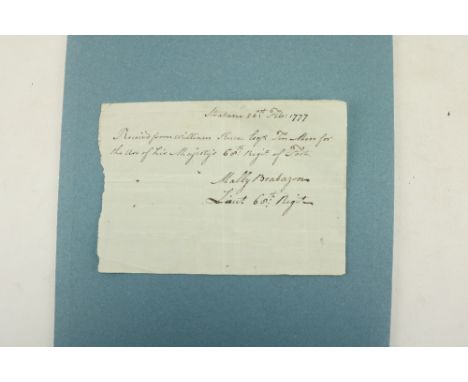 26th Feb: 1777
Received from William Esqr Ten Men for
the Use of his Majestys 68th Regt of Foot
Mally Brabazon
Lieut 68th Regt